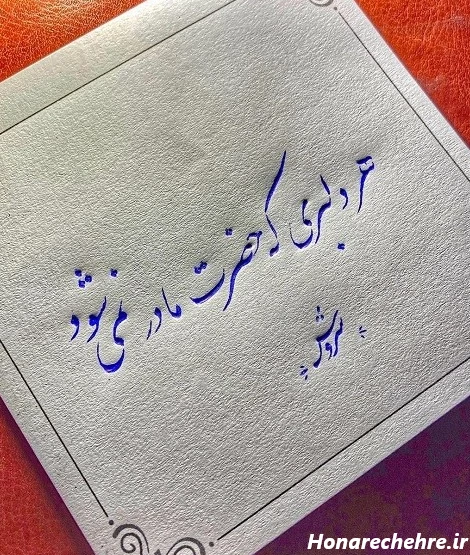 هر دلبری که حضرت مادر نمی شود
سروش
Honarechehre.ir